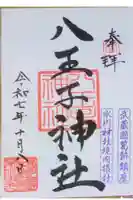 奉拝
八王子神社
令和七年十月八日
武蔵國葛飾郡鎮座
氷川神社境内摂社